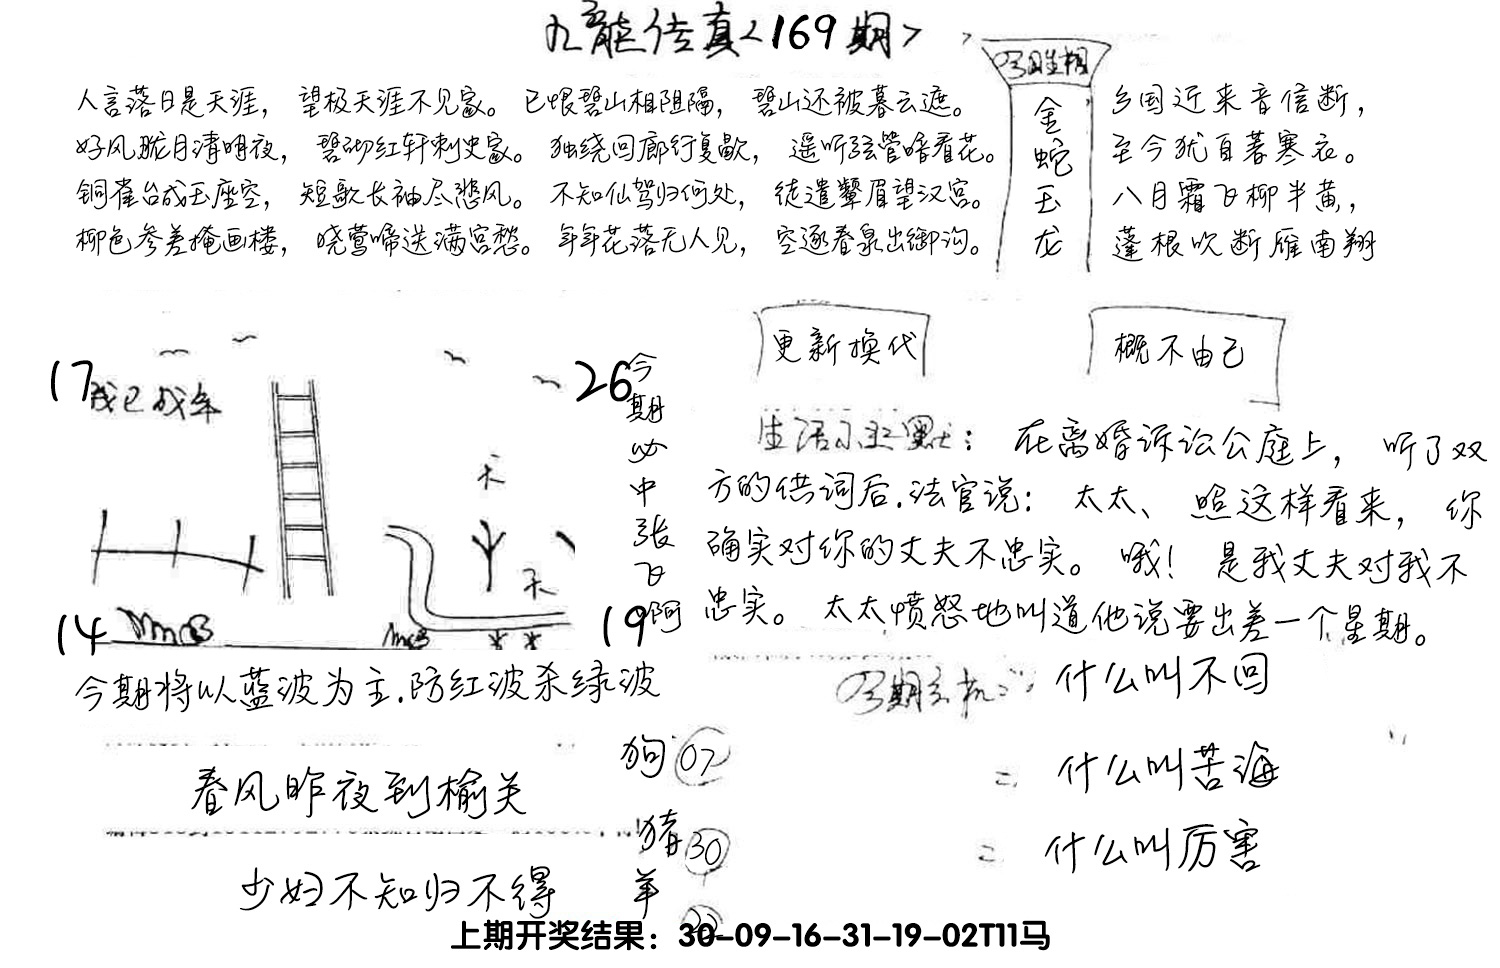 九龙传真<169期>
人言落日是天涯，望极天涯不见家。已恨碧山相阻隔，碧山还被暮云遮。
好风胧月清明夜，碧砌红轩刺史家。独绕回廊行复歇，遥听弦管暗看花。
铜雀台成玉座空，短歌长袖尽悲风。不知仙驾归何处，徒遣颦眉望汉宫。
柳色参差掩画楼，晓莺啼送满宫愁。年年花落无人见，空逐春泉出御沟。
金蛇玉龙
乡国近来音信断，
至今犹自著寒衣。
八月霜飞柳半黄，
蓬根吹断雁南翔
17
26
14
19
天
天
今期必中张飞阿
更新换代
概不由己
生活小幽默：在离婚诉讼公庭上，听了双
方的供词后.法官说：太太、照这样看来，你
确实对你的丈夫不忠实。哦！是我丈夫对我不
忠实。太太愤怒地叫道他说要出差一个星期。
今期将以蓝波为主.防红波杀绿波
春风昨夜到榆关
少妇不知归不得
狗 07
猪 30
羊
今期玄机 什么叫不回
二 什么叫苦海
二 什么叫厉害
上期开奖结果：30-09-16-31-19-02T11马